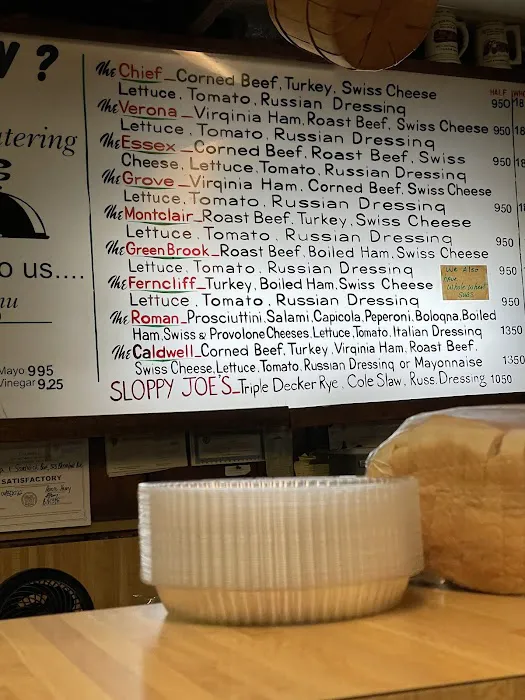 W?
The Chief - Corned Beef, Turkey, Swiss Cheese
Lettuce, Tomato, Russian Dressing 950
The Verona - Virginia Ham, Roast Beef, Swiss Cheese
Lettuce, Tomato, Russian Dressing 950
The Essex - Corned Beef, Roast Beef, Swiss
Cheese, Lettuce, Tomato, Russian Dressing 950
The Grove - Virginia Ham, Corned Beef, Swiss Cheese
Lettuce, Tomato, Russian Dressing 950
The Montclair - Roast Beef, Turkey, Swiss Cheese
Lettuce, Tomato, Russian Dressing 950
The Green Brook - Roast Beef, Boiled Ham, Swiss Cheese
Lettuce, Tomato, Russian Dressing 950
The Ferncliff - Turkey, Boiled Ham, Swiss Cheese
Lettuce, Tomato, Russian Dressing 950
The Roman - Prosciuttini, Salami, Capicola, Peperoni, Bologna, Boiled
Ham, Swiss & Provolone Cheeses, Lettuce, Tomato, Italian Dressing 1350
The Caldwell - Corned Beef, Turkey, Virginia Ham, Roast Beef,
Swiss Cheese, Lettuce, Tomato, Russian Dressing or Mayonnaise 1350
SLOPPY JOE'S - Triple Decker Rye, Cole Slaw, Russ. Dressing 1050
HALF
atering
o us....
nu
Mayo 995
Vinegar 9.25
Have
Whole Wheat
Subs
SATISFACTORY